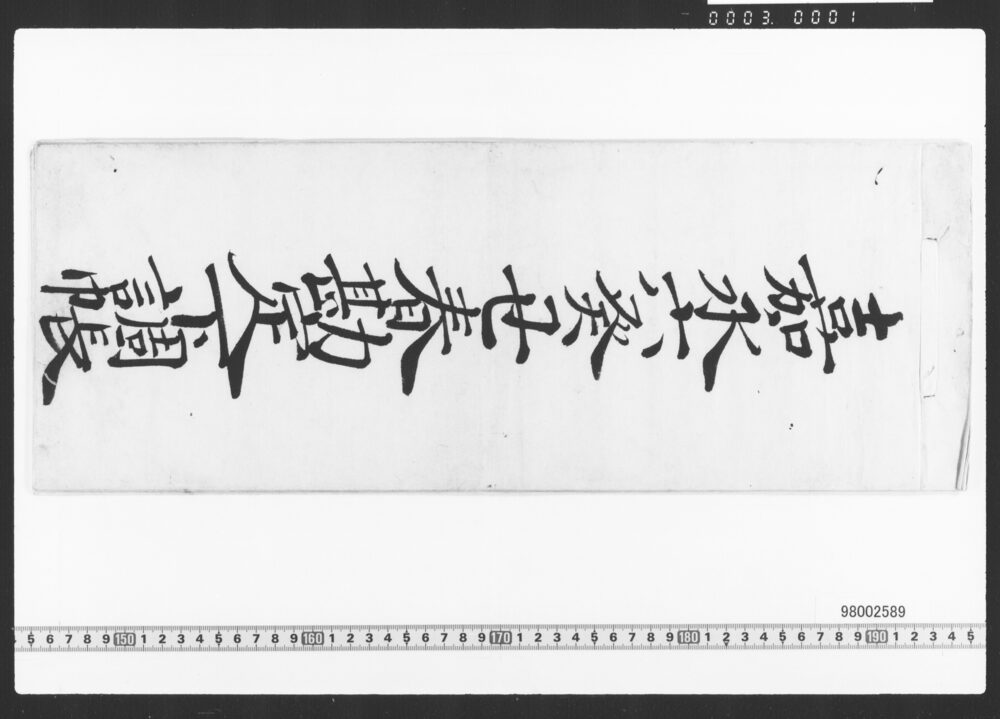 嘉永六癸丑春勘定下調帳
0003. 0001
98002589
5 6 7 8 9 150 1 2 3 4 5 6 7 8 9 160 1 2 3 4 5 6 7 8 9 170 1 2 3 4 5 6 7 8 9 180 1 2 3 4 5 6 7 8 9 190 1 2 3 4 5